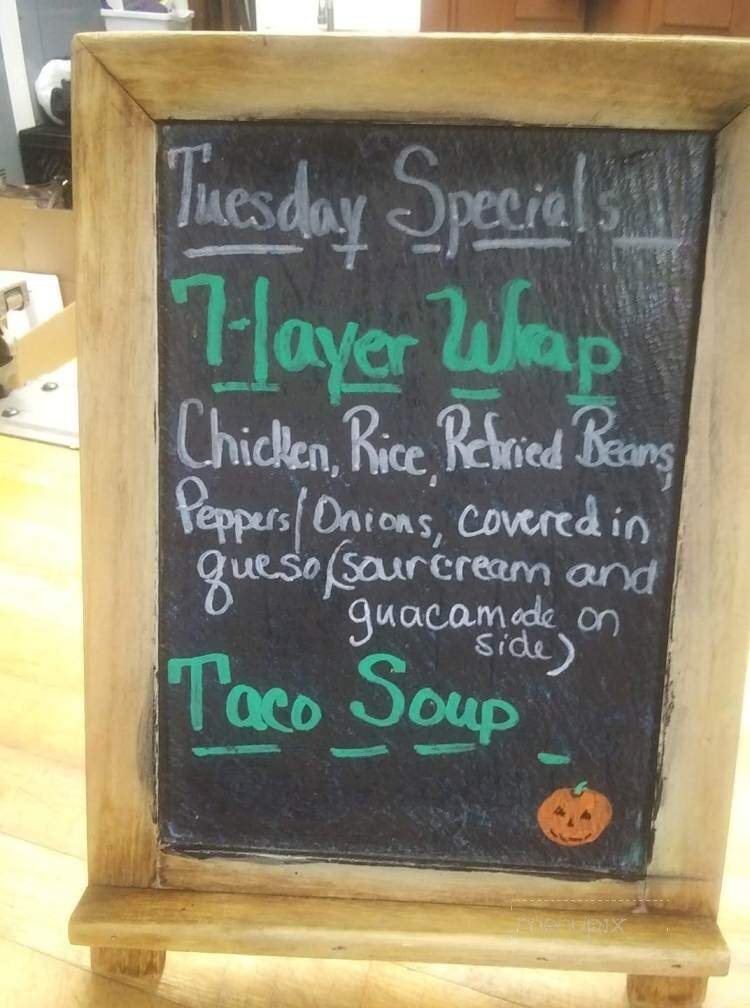 Tuesday Specials
7-layer Wrap
Chicken, Rice, Refried Beans,
Peppers/Onions, covered in
queso (sour cream and
guacamode on
side)
Taco Soup
menupix